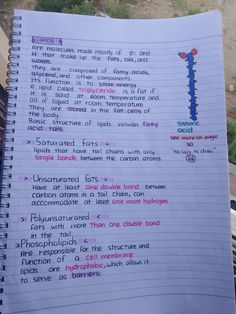 Lipids
Are molecules made mostly of C and
H that make up the fats, oils, and
waxes.
They are composed of fatty acids,
glycerol, and other components.
Its function is to store energy.
A lipid called triglyceride is a fat if
it is solid at room temperature and
oil if liquid at room temperature.
They are stored in the fat cells of
the body.
Basic structure of lipids includes fatty
acid tails.
Stearic
acid
see more on page
10
"too lazy to draw"
> Saturated fats
lipids that have tail chains with only
single bonds between the carbon atoms
> Unsaturated fats
Have at least one double bond between
carbon atoms in a tail chain, can
accommodate at least one more hydrogen.
> Polyunsaturated
Fats with more than one double bond
in the tail.
> Phospholipids
Are responsible for the structure and
function of a cell membrane
lipids are hydrophobic, which allows it
to serve as barriers.